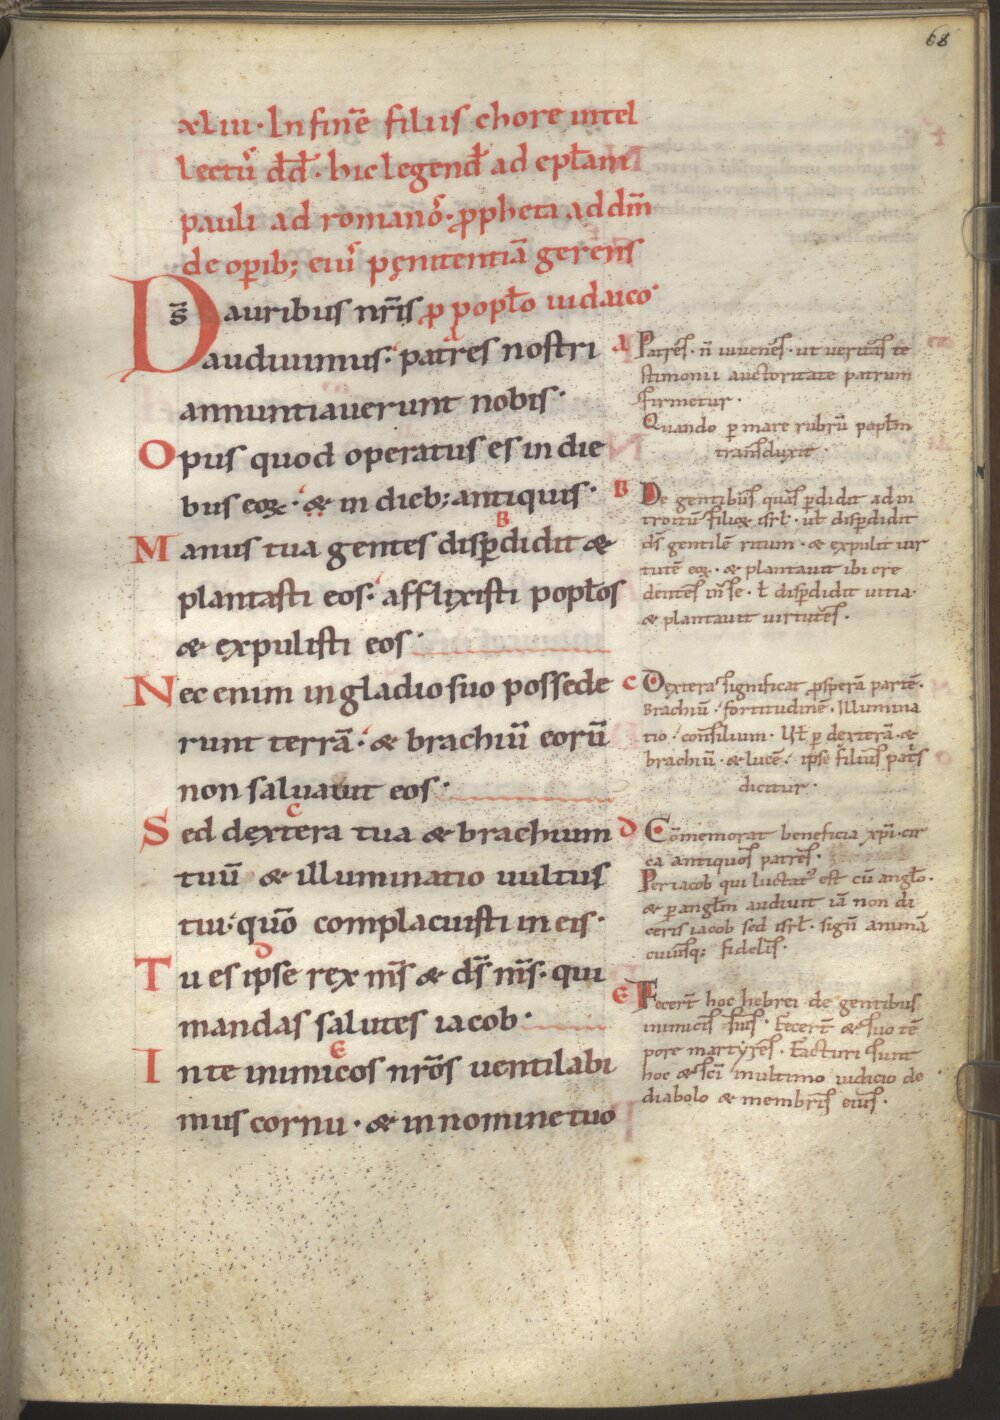 68
xliii· In finē filiis chore intel
lectū dd̄· hic legend̄ ad eptam
pauli ad romanō· ꝓpheta ad dm̄
de opib; eiū pęnitentiā gerens
Ds̄ auribus nr̄is ꝓ poplo iudaico·
audiuimus· patres nostri
annuntiauerunt nobis·
Opus quod operatus es in die
bus eoꝝ· & in dieb; antiquis·
Manus tua gentes disꝑdidit &
plantasti eos· afflixisti poplos
& expulisti eos·
Nec enim in gladio suo possede
runt terrā· & brachiū eorū
non saluauit eos·
Sed dextera tua & brachium
tuū & illuminatio uultus
tui· quō complacuisti in eis·
Tu es ipse rex ms̄ & ds̄ ms̄· qui
mandas salutes iacob·
In te inimicos nrōs uentilabi
mus cornu· & in nomine tuo
A Patres̄· n̄ iuuenes̄· ut ueritas̄ te
stimonii auctoritate patrum
firmetur·
Quando ꝑ mare rubrū poplm
trans̄duxit·
B De gentibus̄ quas̄ ꝑdidit ad in
troitū filioꝝ isrl̄· ut disꝑdidit
ds̄ gentilē ritum· & expulit uir
tutē eoꝝ· & plantauit ibi cre
dentes̄ in se· ł disꝑdidit uitia·
& plantauit uirtutes̄·
C Dextera significat ꝓsperā partē·
Brachiū· fortitudinē· Illumina
tio· consilium· Vel ꝑ dexterā· &
brachiū· & lucē· ipse filius patis̄
dicitur·
D Cōmemorat beneficia xpi· cir
ca antiquos patres̄·
Per iacob qui luctat᷒ est cū anglo·
& ꝑ anglm audiuit iā non di
ceris iacob sed isrl̄· sign̄ animā
cuiusq; fidelis̄·
E Fecer̄t hoc hebrei de gentibus
inimicis̄ suis̄· Fecer̄t & suo tē
pore martyres̄· Facturi sunt
hoc & sc̄i in ultimo iudicio de
diabolo & membris̄ eius̄·